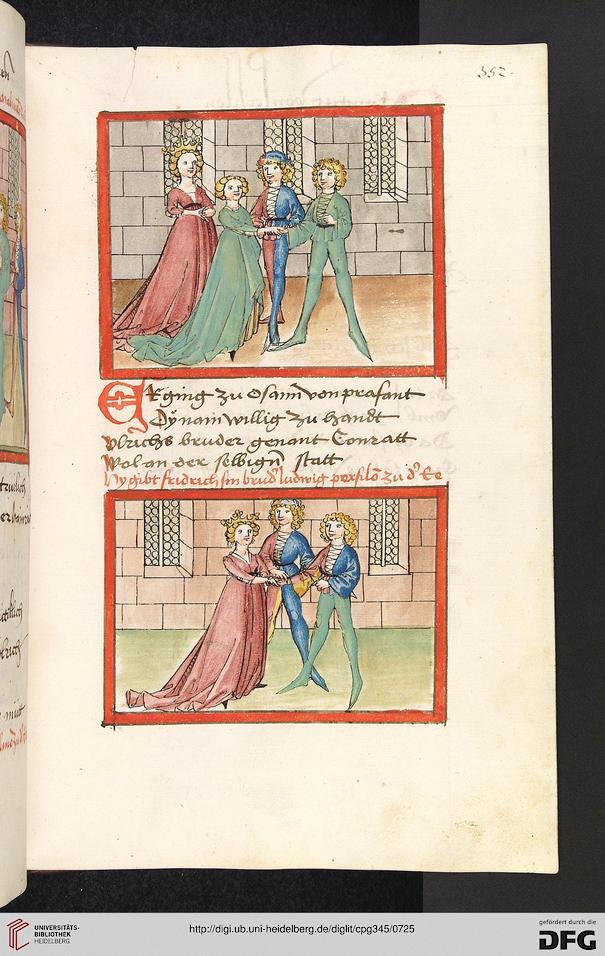 352
ER ging zu Osann von prafant
Dÿ nam willig zu handt
Vlrichs bruder genant Conratt
Wol an der selbigñ statt
Hy gibt fridrich sin brud' ludwig persilo zu d' Ee
UNIVERSITÄTS-
BIBLIOTHEK
HEIDELBERG
http://digi.ub.uni-heidelberg.de/diglit/cpg345/0725
gefördert durch die
DFG